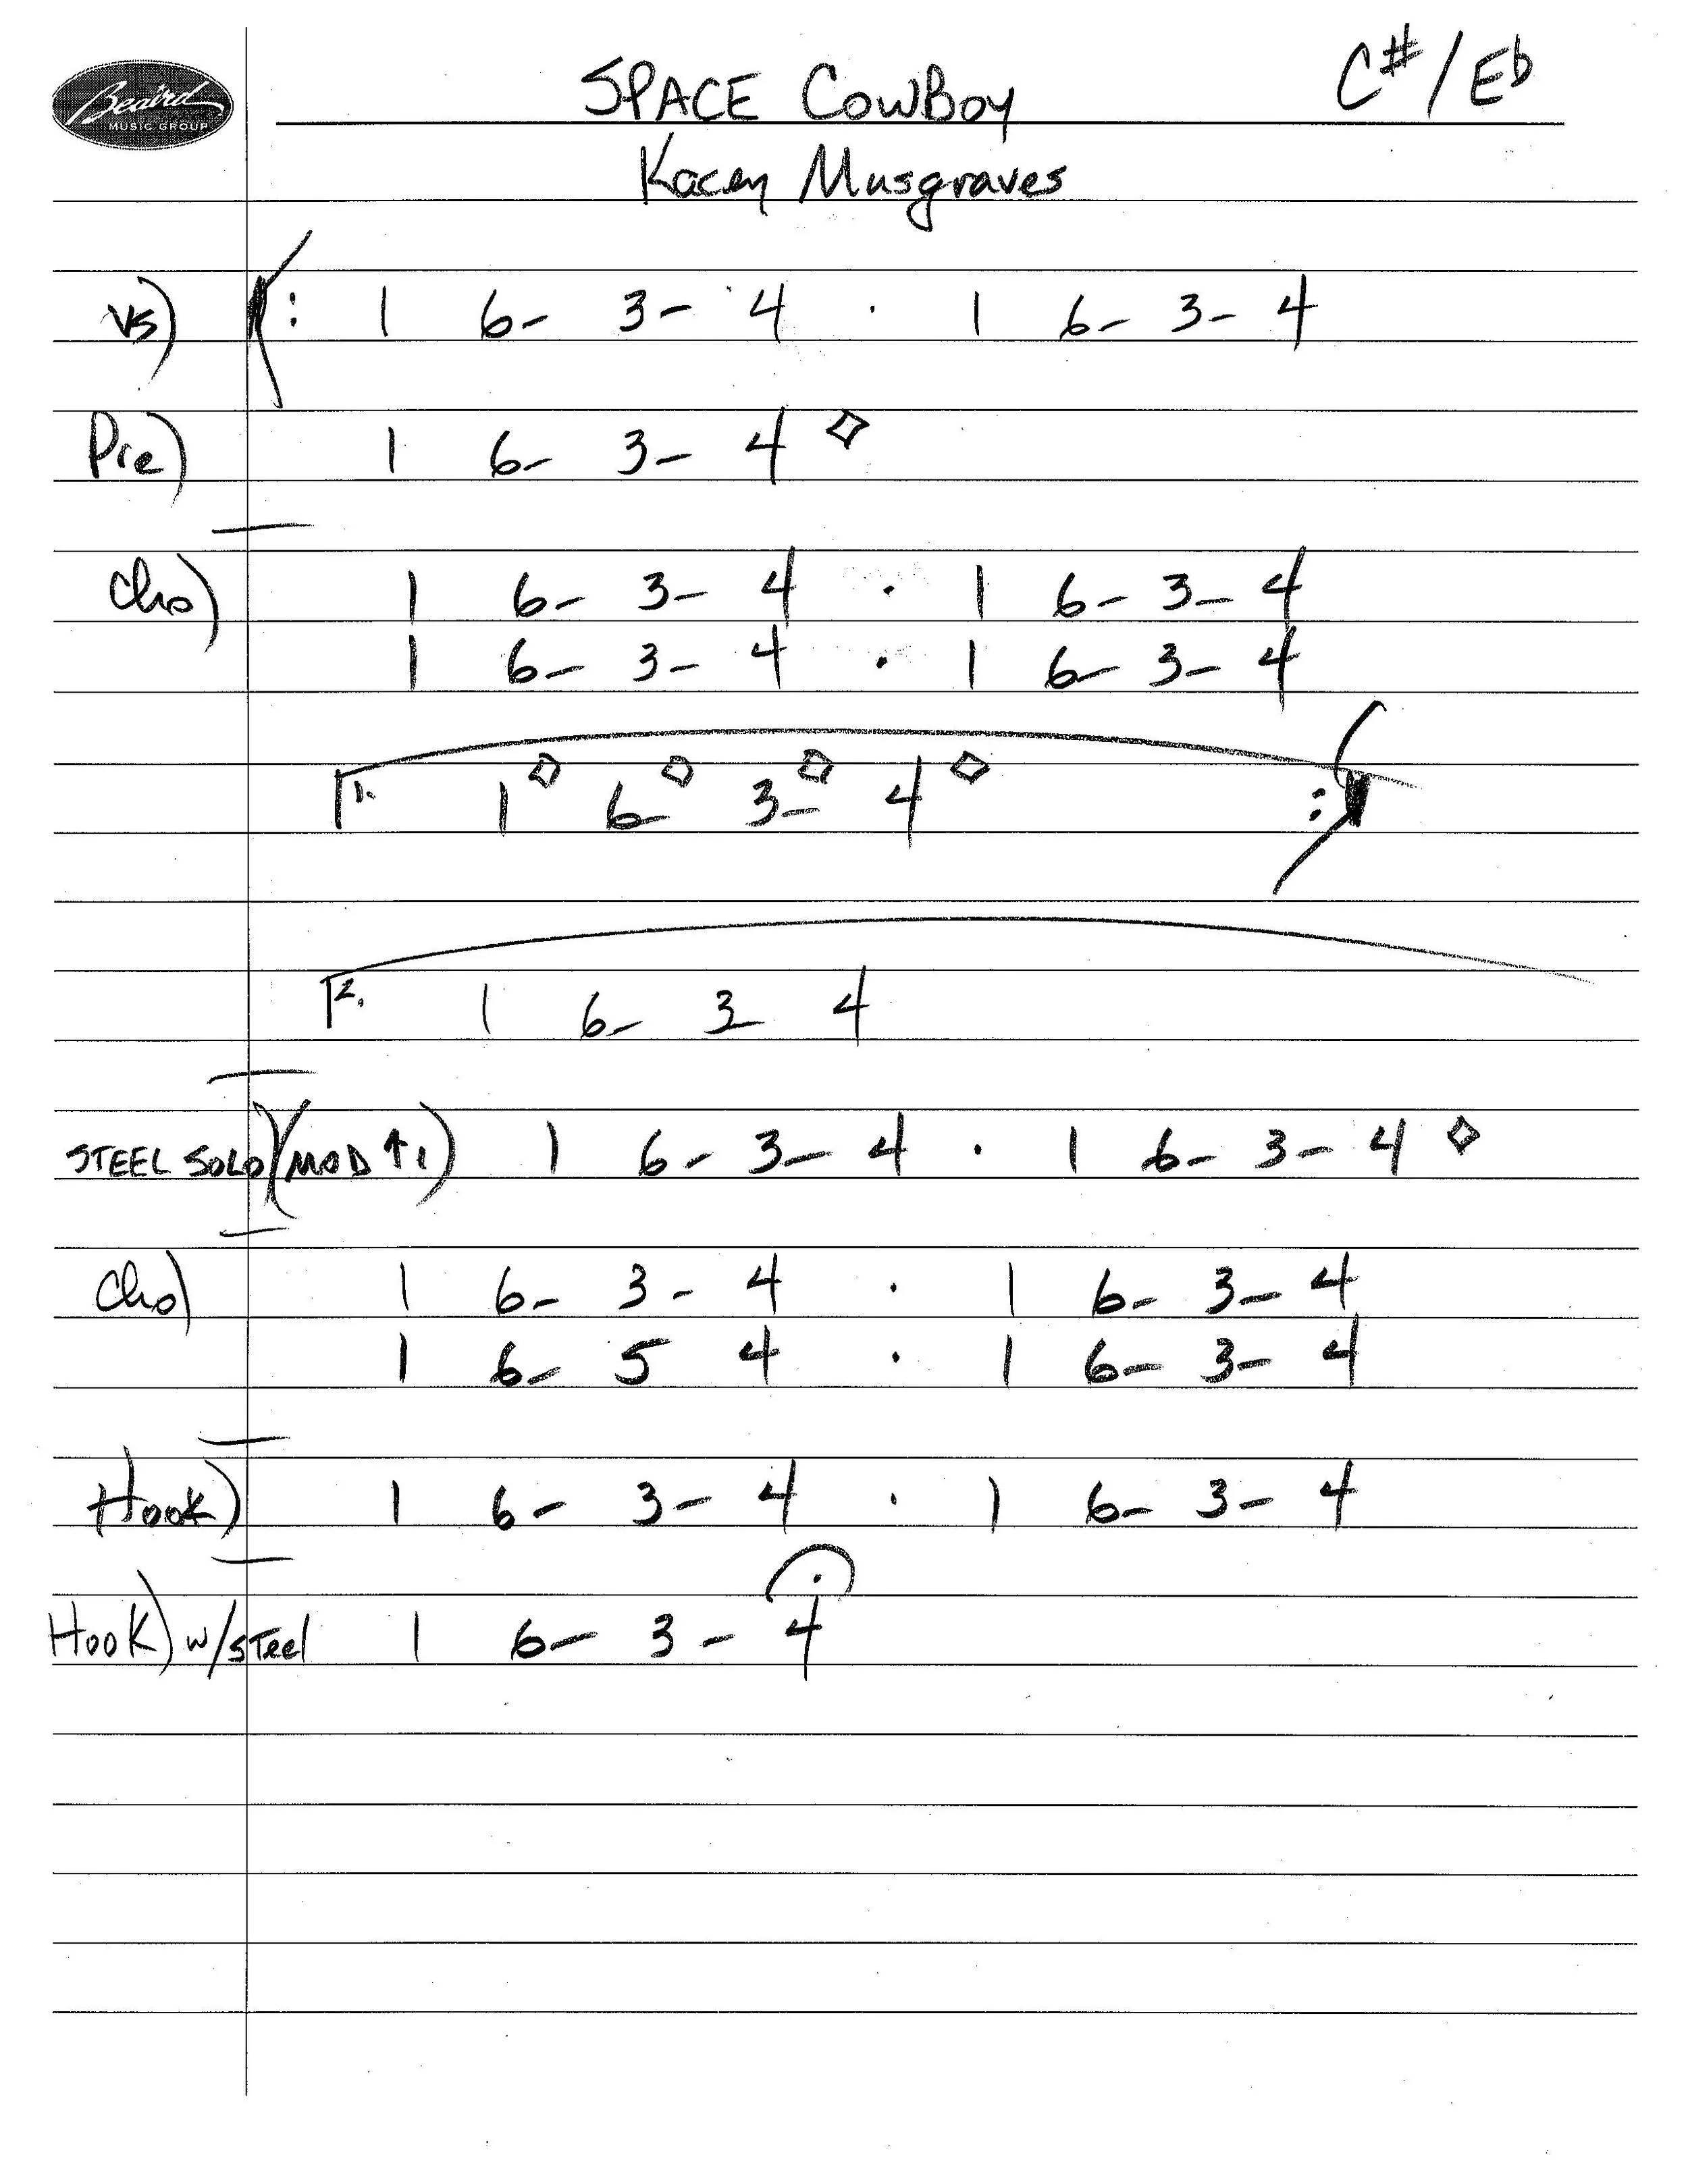 Beaird
MUSIC GROUP
SPACE COWBOY C#/Eb
Kacey Musgraves
VS) 𝄆 1 6- 3- 4 . 1 6- 3- 4
Pre) 1 6- 3- 4 ◇
Cho) 1 6- 3- 4 . 1 6- 3- 4
1 6- 3- 4 . 1 6- 3- 4
1. 1◇ 6-◇ 3-◇ 4◇ 𝄇
2. 1 6- 3- 4
STEEL SOLO) (MOD ↑1) 1 6- 3- 4 . 1 6- 3- 4 ◇
Cho) 1 6- 3- 4 . 1 6- 3- 4
1 6- 5 4 . 1 6- 3- 4
Hook) 1 6- 3- 4 . 1 6- 3- 4
Hook) w/steel 1 6- 3- 4 𝄐